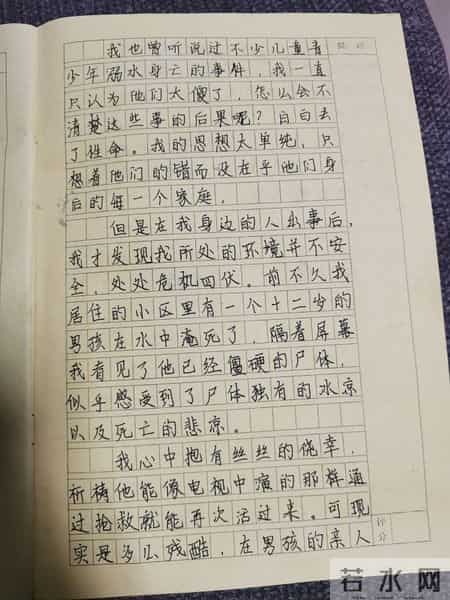 我也曾听说过不少儿童青
少年溺水身亡的事件，我一直
只认为他们太傻了，怎么会不
清楚这些事的后果呢？白白丢
了性命。我的思想太单纯，只
想着他们的错而没在乎他们身
后的每一个家庭，
但是在我身边的人出事后，
我才发现我所处的环境并不安
全，处处危机四伏。前不久我
居住的小区里有一个十二岁的
男孩在水中淹死了，隔着屏幕
我看见了他已经僵硬的尸体，
似乎感受到了尸体独有的冰凉
以及死亡的悲凉。
我心中抱有丝丝的侥幸，
祈祷他能像电视中演的那样通
过抢救就能再次活过来。可现
实是多么残酷，在男孩的亲人
评分
若水网